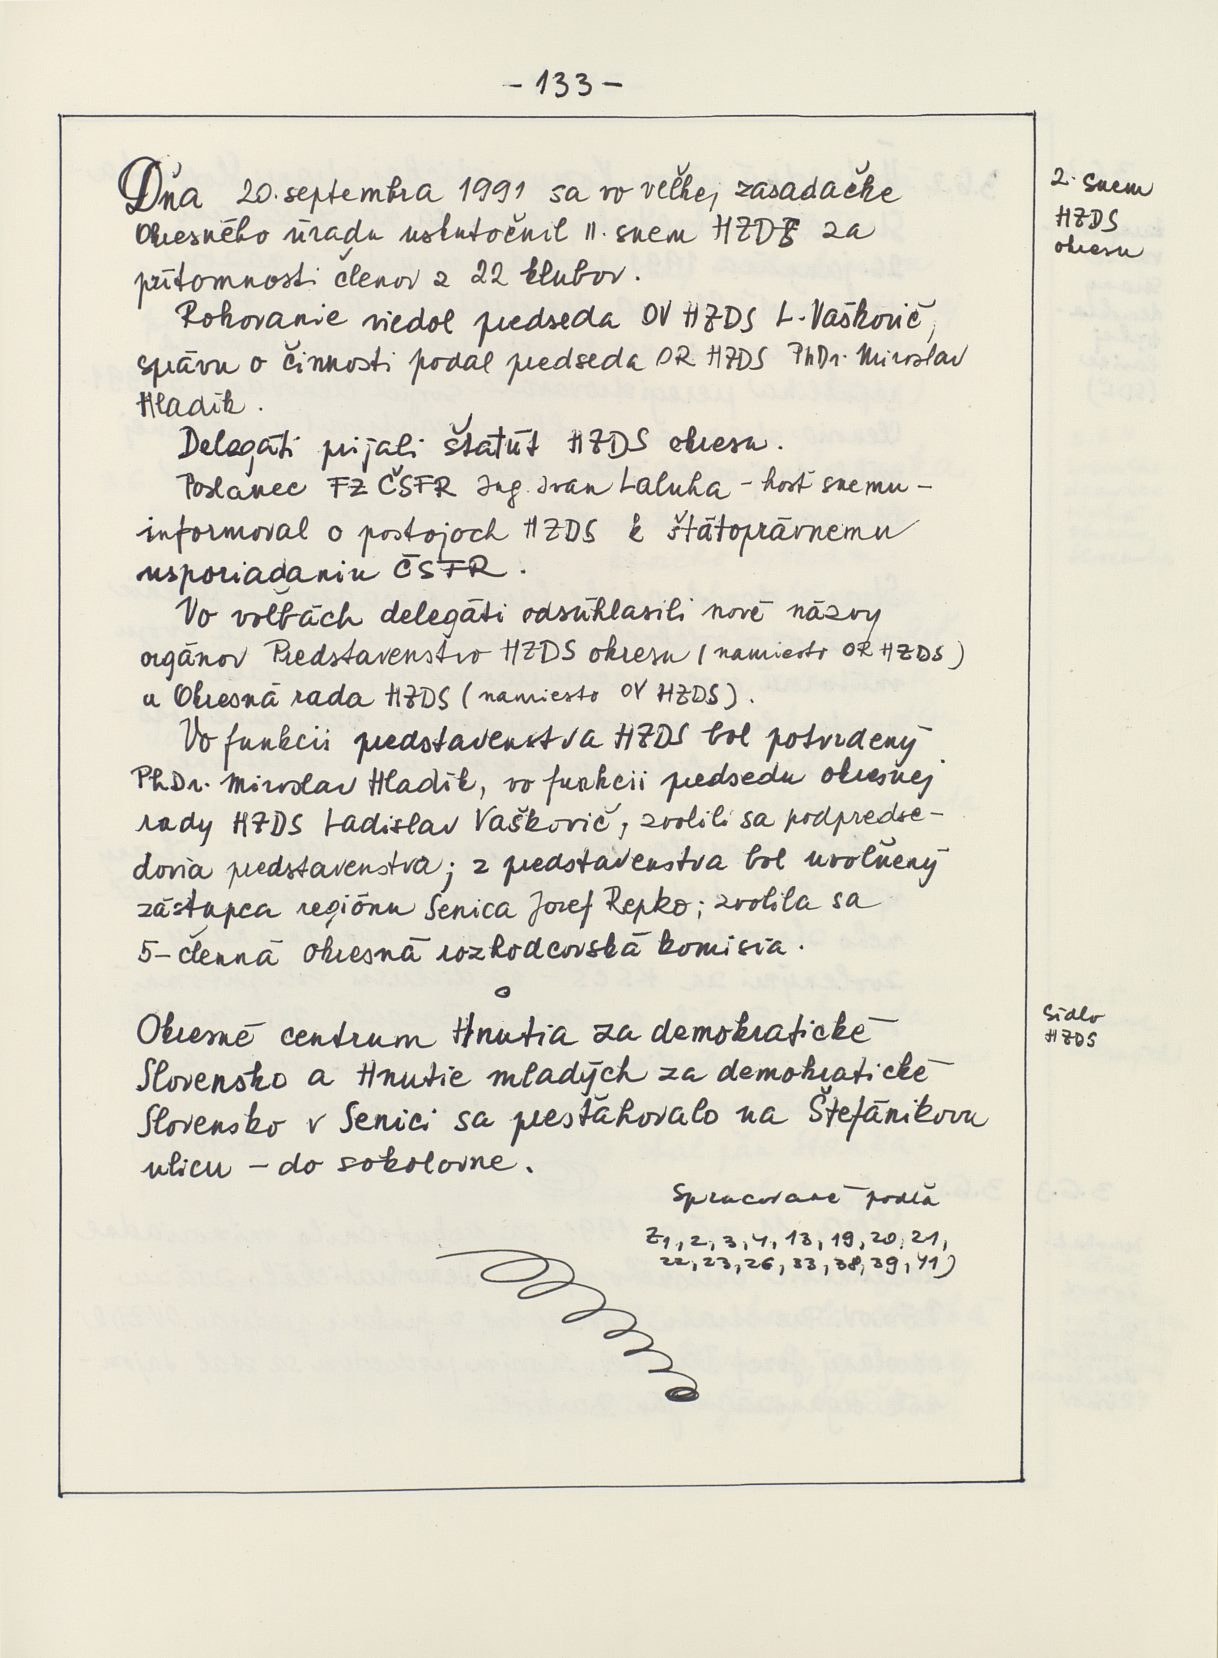 - 133 -
Dňa 20. septembra 1991 sa vo veľkej zasadačke
Okresného úradu uskutočnil II. snem HZDS za
prítomnosti členov z 22 klubov.
Rokovanie viedol predseda OV HZDS L. Vaškovič,
správu o činnosti podal predseda OR HZDS PhDr. Miroslav
Hladík.
Delegáti prijali štatút HZDS okresu.
Poslanec FZ ČSFR Ing. Ivan Laluha - hosť snemu -
informoval o postojoch HZDS k štátoprávnemu
usporiadaniu ČSFR.
Vo voľbách delegáti odsúhlasili nové názvy
orgánov Predstavenstvo HZDS okresu (namiesto OR HZDS)
a Okresná rada HZDS (namiesto OV HZDS).
Vo funkcii predstavenstva HZDS bol potvrdený
PhDr. Miroslav Hladík, vo funkcii predsedu okresnej
rady HZDS Ladislav Vaškovič, zvolili sa podpredse-
dovia predstavenstva; z predstavenstva bol uvoľnený
zástupca regiónu Senica Jozef Repko; zvolila sa
5-členná okresná rozhodcovská komisia.
Okresné centrum Hnutia za demokratické
Slovensko a Hnutie mladých za demokratické
Slovensko v Senici sa presťahovalo na Štefánikovu
ulicu - do sokolovne.
Spracované podľa
Z1, 2, 3, 4, 13, 19, 20, 21,
22, 23, 26, 33, 38, 39, 41)
2. snem
HZDS
okresu
Sídlo
HZDS